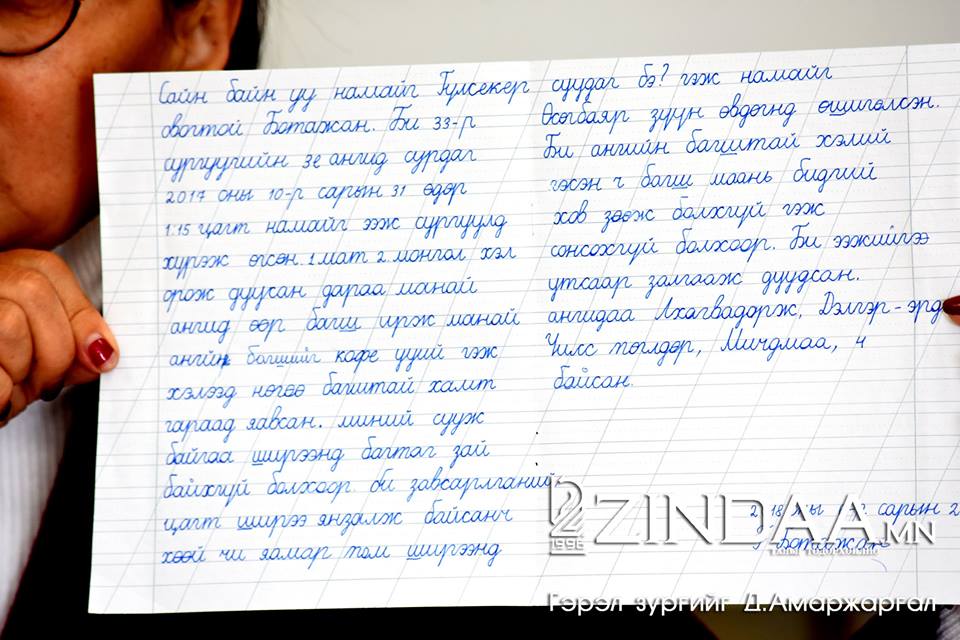 Сайн байн уу намайг Гулсекер
овогтой Ботажан. Би 33-р
сургуугийн 3е ангид сурдаг
2017 оны 10-р сарын 31 өдөр
1:15 цагт намайг ээж сургуулд
хүргэж өгсөн. 1 мат 2. монгол хэл
орож дуусан дараа манай
ангид өөр багш иржманай
ангийн багшийг кофе ууий гэж
хэлээд нөгөө багштай хамт
гараад явсан. миний сууж
байгаа ширээнд багтаг зай
байхгүй болхоор. би завсарлганий
цагт ширээ янзалж байсанч
хөөй чи ямар том ширээнд
суудаг бэ? гэж намайг
Өсөгбаяр зүүн өвдөгнд өшигөлсөн.
Би ангийн багштай хэлий
гэсэн ч багш маань бидгий
хов зөөж болхгүй гэж
сонсохгүй болхоор. Би ээжийгээ
утсаар залгааж дуудсан.
ангидаа Лхагвадорж, Дэлгэр-эрд
Чилс төглдөр, Мичдмаа, ч
байсан.
сарын 2
Ботажан
1996
ZINDAA.MN
ТАНЫ ТОДОРХОЙЛНО
Гэрэл зургийг Д.Амаржаргал